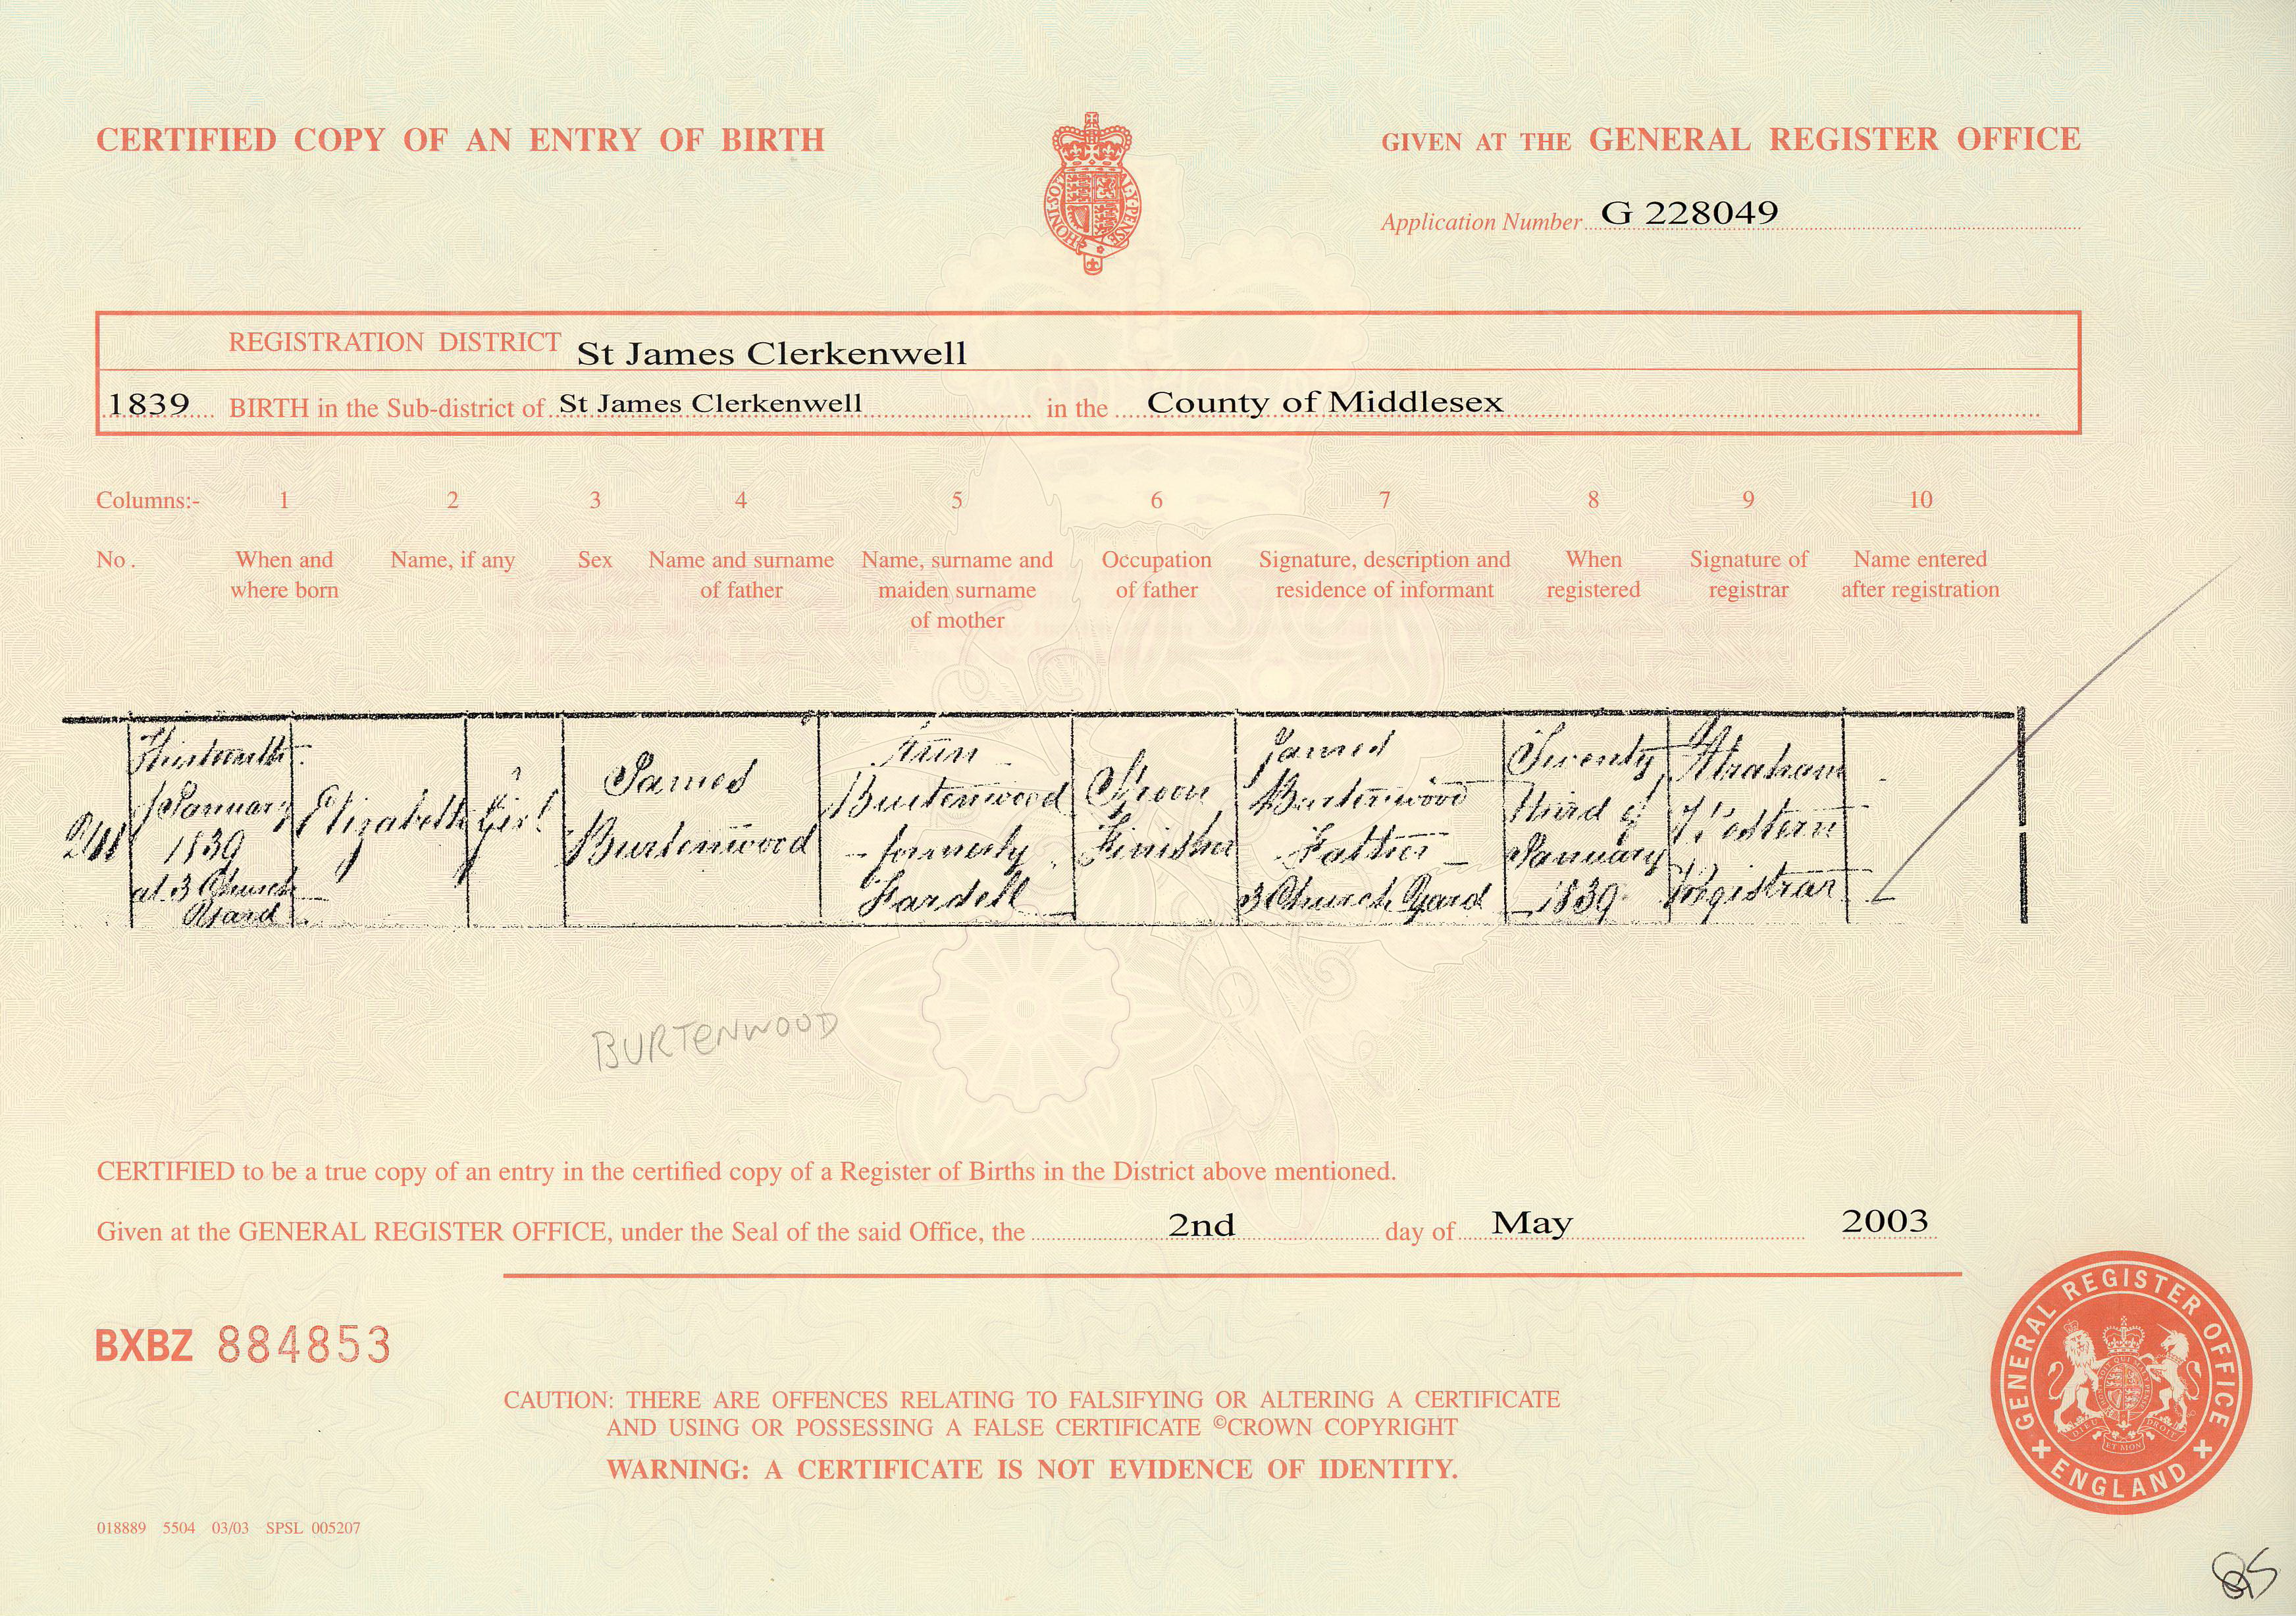 CERTIFIED COPY OF AN ENTRY OF BIRTH
GIVEN AT THE GENERAL REGISTER OFFICE
HONI·SOIT·QUI·MAL·Y·PENSE
Application Number G 228049
REGISTRATION DISTRICT St James Clerkenwell
1839 BIRTH in the Sub-district of St James Clerkenwell in the County of Middlesex
Columns:- 1 2 3 4 5 6 7 8 9 10
No. When and where born
Name, if any
Sex
Name and surname of father
Name, surname and maiden surname of mother
Occupation of father
Signature, description and residence of informant
When registered
Signature of registrar
Name entered after registration
Thirteenth
January
1839
at 3 Church
Yard
Elizabeth
Girl
James
Burtenwood
Ann
Burtenwood
formerly
Fardell
Spoon
Finisher
James
Burtenwood
Father
3 Church Yard
Twenty
Third of
January
1839
Abraham
Registrar
BURTENWOOD
CERTIFIED to be a true copy of an entry in the certified copy of a Register of Births in the District above mentioned.
Given at the GENERAL REGISTER OFFICE, under the Seal of the said Office, the 2nd day of May 2003
BXBZ 884853
CAUTION: THERE ARE OFFENCES RELATING TO FALSIFYING OR ALTERING A CERTIFICATE
AND USING OR POSSESSING A FALSE CERTIFICATE ©CROWN COPYRIGHT
WARNING: A CERTIFICATE IS NOT EVIDENCE OF IDENTITY.
GENERAL REGISTER OFFICE
ENGLAND
018889 5504 03/03 SPSL 005207